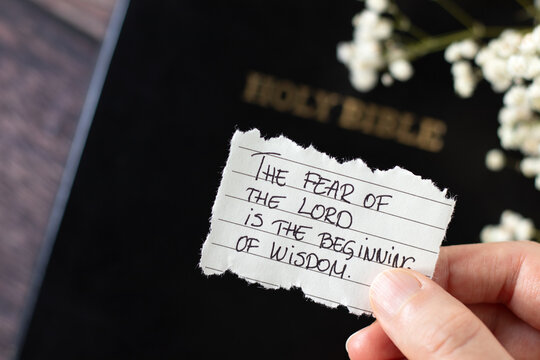 HOLY BIBLE
THE FEAR OF
THE LORD
IS THE BEGINNING
OF WISDOM.